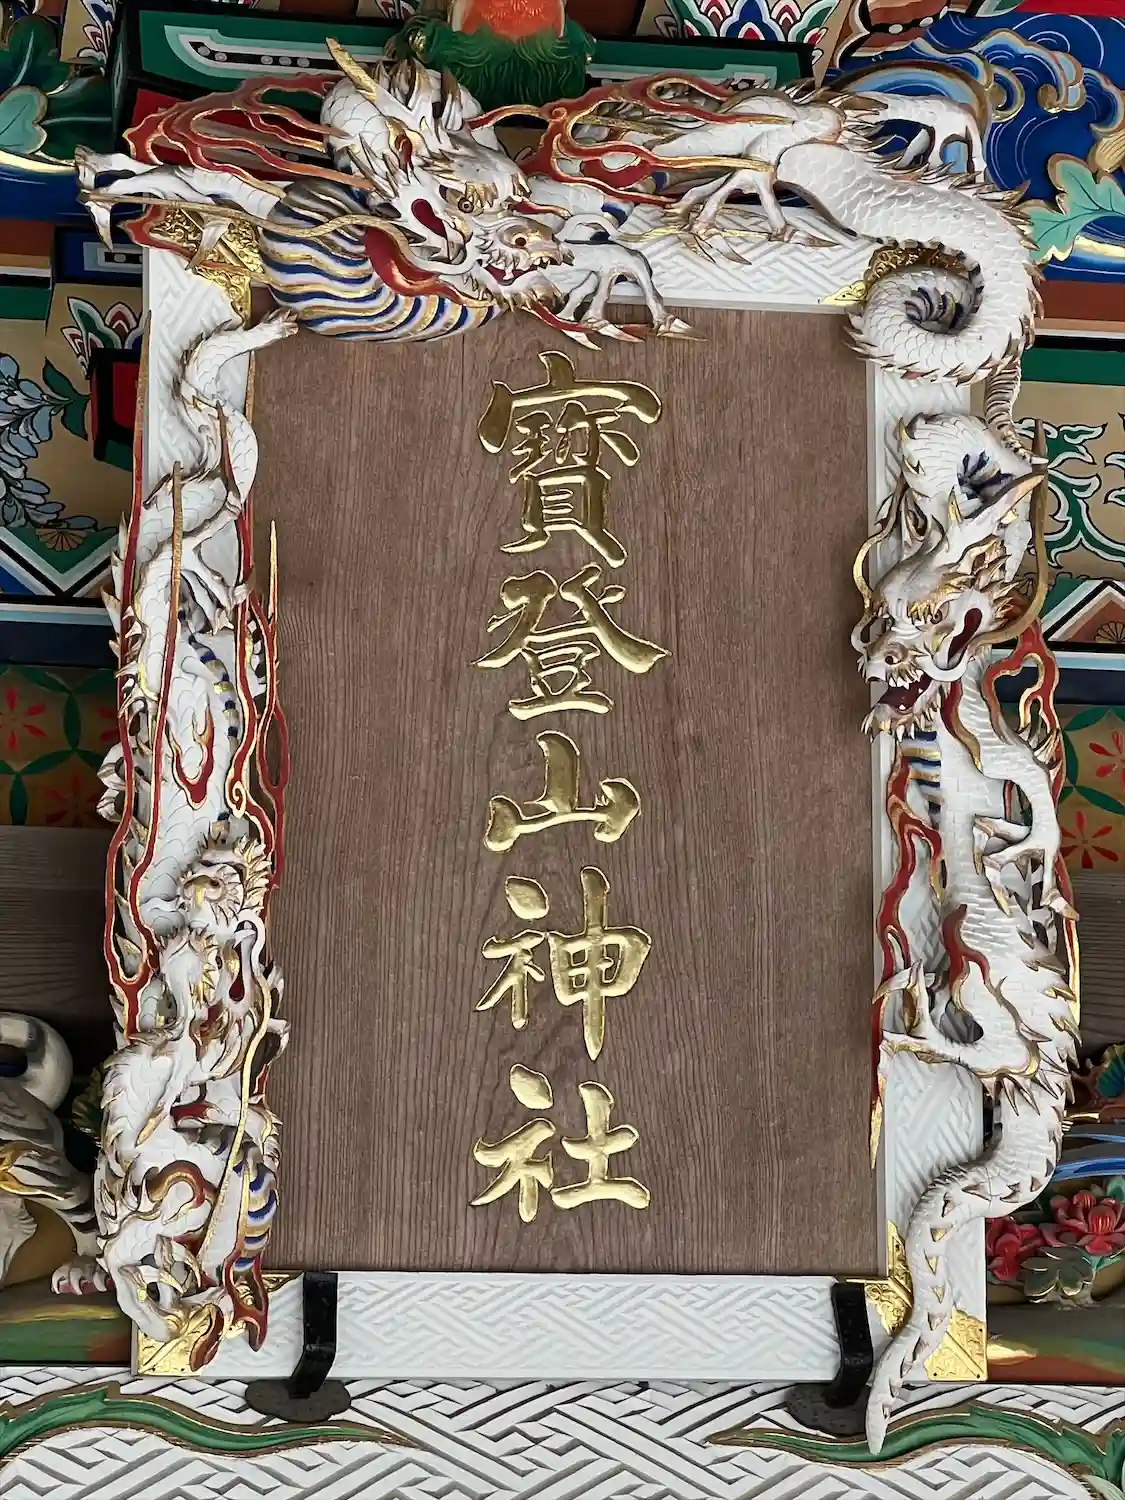 寳登山神社